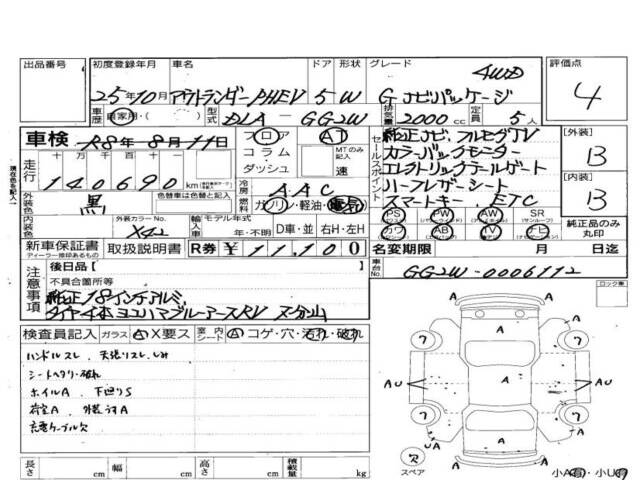 出品番号 初度登録年月 車名 ドア 形状 グレード 評価点
25年10月 アウトランダーPHEV 5 W G ナビパッケージ 4WD 4
車歴 自家用・( ) 型式 DLA-GG2W 排気量 2000cc 定員 5人
車検 R8年8月11日 フロア AT
コラム・ MTのみ記入
ダッシュ 速
走行 十万 万 千 百 十 一
140690 km
外装色 黒 色替車は色替と記入
冷房 AAC
燃料 ガソリン・軽油・電気
内装色 外装カラーNo. X42 輸入車 モデル年式 年・不明 D車・並 右H・左H
セールスポイント
純正ナビ フルセグTV
カラーバックモニター
エレクトリックテールゲート
ハーフレザーシート
スマートキー、ETC
PS PW AW SR
(パワステ) (パワーウィンドウ) (アルミホイル) (サンルーフ)
カワ AB TV ナビ
純正品のみ丸印
[外装]
B
[内装]
B
新車保証書 取扱説明書 R券 ¥11,100
ディーラー捺印あるもの
名変期限 月 日迄
車台No. GG2W-0006112
注意事項
後日品[ ]
不具合箇所等
純正18インチアルミ
ダイヤ4本ヨコハマブルーアースRV
検査員記入 ガラス A X要ス 室内シート A コゲ・穴・汚れ・破れ
ハンドルスレ、天張リスレ、しみ
シートヘタリ・破れ
ホイルA 下廻りS
荷室A
充電ケーブル欠
長さ cm 幅 cm 高さ cm 積載量 kg
ロック車
A
ワ ワ
AU A AU
ワ ワ
UA A A
欠
スペア
小A(有)・小U(有)